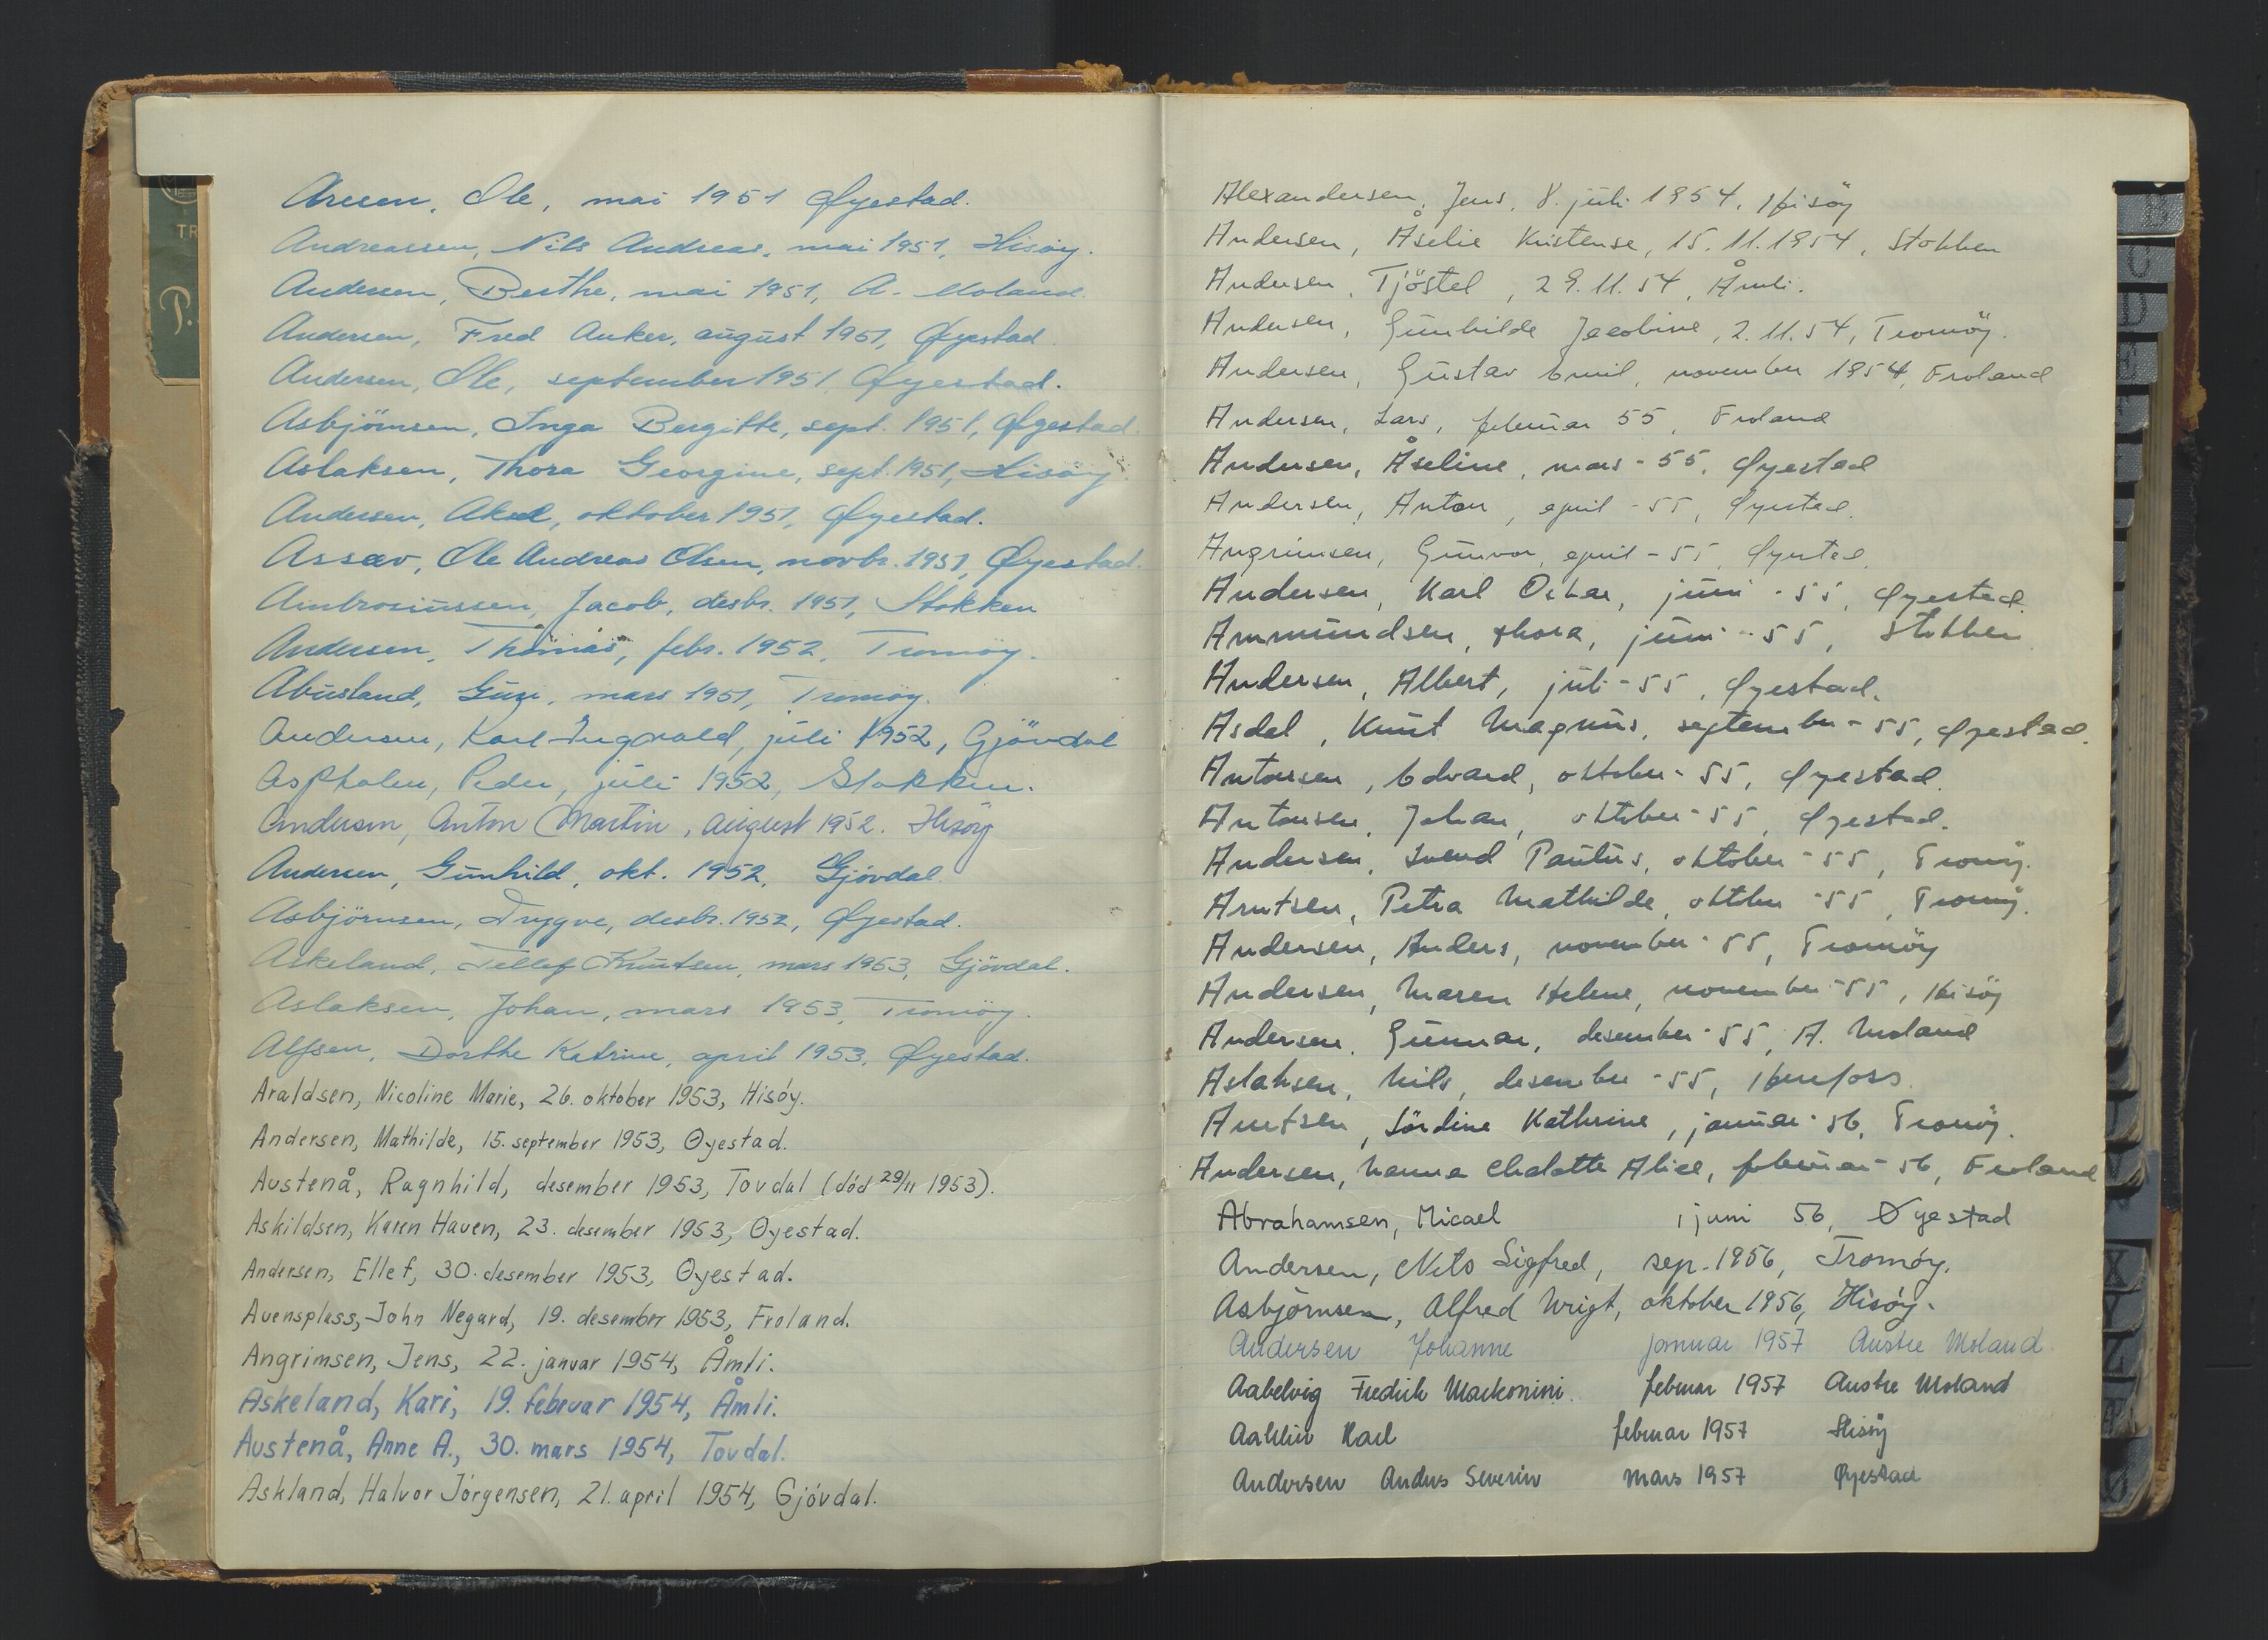 Aresen, Ole, mai 1951 Øyestad.
Andreassen, Nils Andreas, mai 1951, Hisöy.
Andersen, Berthe, mai 1951, A. Moland.
Andersen, Fred Anker, august 1951, Øyestad.
Andersen, Ole, september 1951, Øyestad.
Asbjörnsen, Inga Bergitte, sept. 1951, Øyestad.
Aslaksen, Thora Georgine, sept. 1951, Hisöy.
Andersen, Aksel, oktober 1951, Øyestad.
Assev, Ole Andreas Olsen, novbr. 1951, Øyestad.
Ambrosiussen, Jacob, desbr. 1951, Stokken
Andersen, Thomas, febr. 1952, Tromöy.
Abusland, Guri, mars 1951, Tromöy.
Andersen, Karl Ingvald, juli 1952, Gjövdal
Aspholm, Peder, juli 1952, Stokken.
Andersen, Anton Martin, august 1952. Hisöy
Andersen, Gunhild, okt. 1952, Gjövdal.
Asbjörnsen, Trygve, desbr. 1952, Øyestad.
Askeland, Tellef Knutsen, mars 1953, Gjövdal.
Aslaksen, Johan, mars 1953, Tromöy.
Alfsen, Dorthe Katrine, april 1953, Øyestad.
Araldsen, Nicoline Marie, 26. oktober 1953, Hisóy.
Andersen, Mathilde, 15. september 1953, Øyestad.
Austenå, Ragnhild, desember 1953, Tovdal (dód 29/11 1953).
Askildsen, Karen Haven, 23. desember 1953, Øyestad.
Andersen, Ellef, 30. desember 1953, Øyestad.
Avensplass, John Negard, 19. desember 1953, Froland.
Angrimsen, Jens, 22. januar 1954, Åmli.
Askeland, Kari, 19. februar 1954, Åmli.
Austenå, Anne A., 30. mars 1954, Tovdal.
Askland, Halvor Jórgensen, 21. april 1954, Gjóvdal.
TR
P.
Alexandersen, Jens, 8. juli 1954, Hisöy
Andersen, Åselie Kristense, 15.11.1954, Stokken
Andersen, Tjöstel, 29.11.54, Åmli.
Andersen, Gunhilde Jacobine, 2.11.54, Tromöy.
Andersen, Gustav Emil, november 1954, Froland
Andersen, Lars, februar 55, Froland
Andersen, Åseline, mars - 55, Øyestad
Andersen, Anton, april - 55, Øyestad.
Angrimsen, Gunvor, april - 55, Øyestad.
Andersen, Karl Oskar, juni - 55, Øyestad.
Ammundsen, Thora, juni - 55, Stokken
Andersen, Albert, juli - 55, Øyestad.
Asdal, Knut Magnus, september - 55, Øyestad.
Antonsen, Edvard, oktober - 55, Øyestad.
Antonsen, Johan, oktober - 55, Øyestad.
Andersen, Svend Paulus, oktober - 55, Tromöy.
Arntsen, Petra Mathilde, oktober - 55, Tromöy.
Andersen, Anders, november - 55, Tromöy
Andersen, Maren Helene, november - 55, Hisöy
Andersen, Gunnar, desember - 55, A. Moland
Aslaksen, Nils, desember - 55, Herefoss.
Arntsen, Sördine Kathrine, januar - 56, Tromöy.
Andersen, Nanna Chalotte Alice, februar - 56, Froland
Abrahamsen, Micael 1 juni 56, Øyestad
Andersen, Nils Sigfred, sep. 1956, Tromöy.
Asbjørnsen, Alfred Wrigt, oktober 1956, Hisóy.
Andersen Johanne januar 1957 Austre Moland
Aabelvig Fredrik Markonini. februar 1957 Austre Moland
Karl februar 1957 Hisöy
Andersen Anders Severin mars 1957 Øyestad